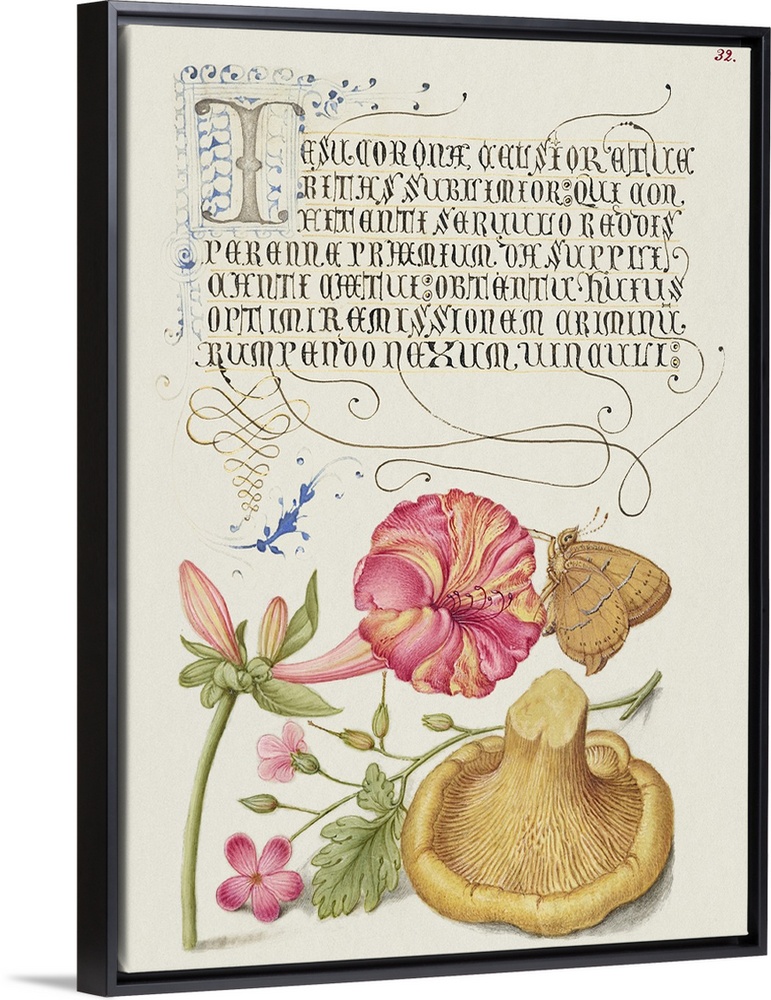 32.
IESU CORONA CELSIOR ET UE
RITAS SUBLIMIOR: QUI CON
FITENTI SERUULO REDDIS
PERENNE PRÆMIUM DA SUPPLI
CANTI CÆTUI: OBTENTU HUIUS
OPTIMI REMISSIONEM CRIMINU
RUM PENDO NEXUM, UINCULI: